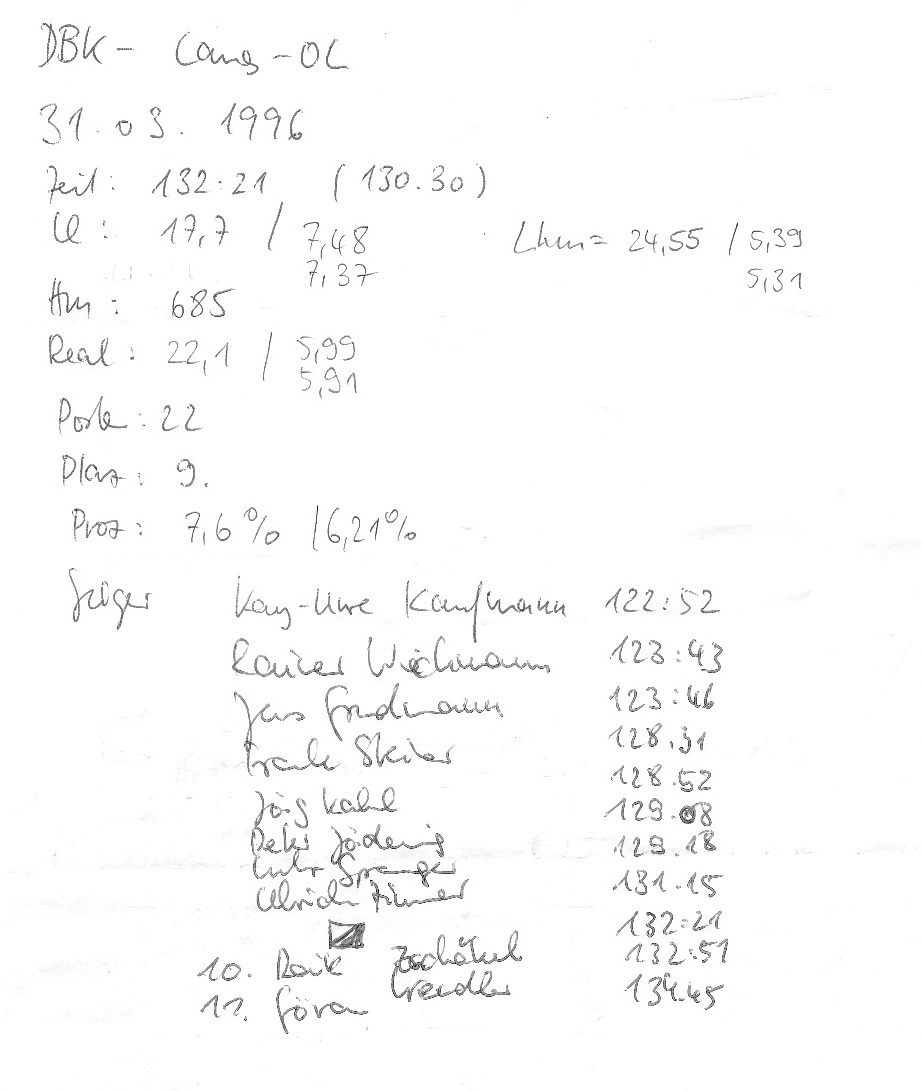 DBK - Lang-OL
31.03.1996
Zeit: 132:21 (130.30)
LL: 17,7 / 7,48 Lkm = 24,55 / 5,39
7,37 5,31
Hm: 685
Real: 22,1 / 5,99
5,91
Posten: 22
Platz: 9.
Proz: 7,6% / 6,21%
Sieger Kay-Uwe Kaufmann 122:52
Rainer Wichmann 123:43
Jens 123:46
Frank 128.31
Jörg Kahl 128.52
Peter 129.08
129.18
Ulrich Zimmer 131.15
132:21
10. Raik Zschäkel 132:51
11. Göran 134.45